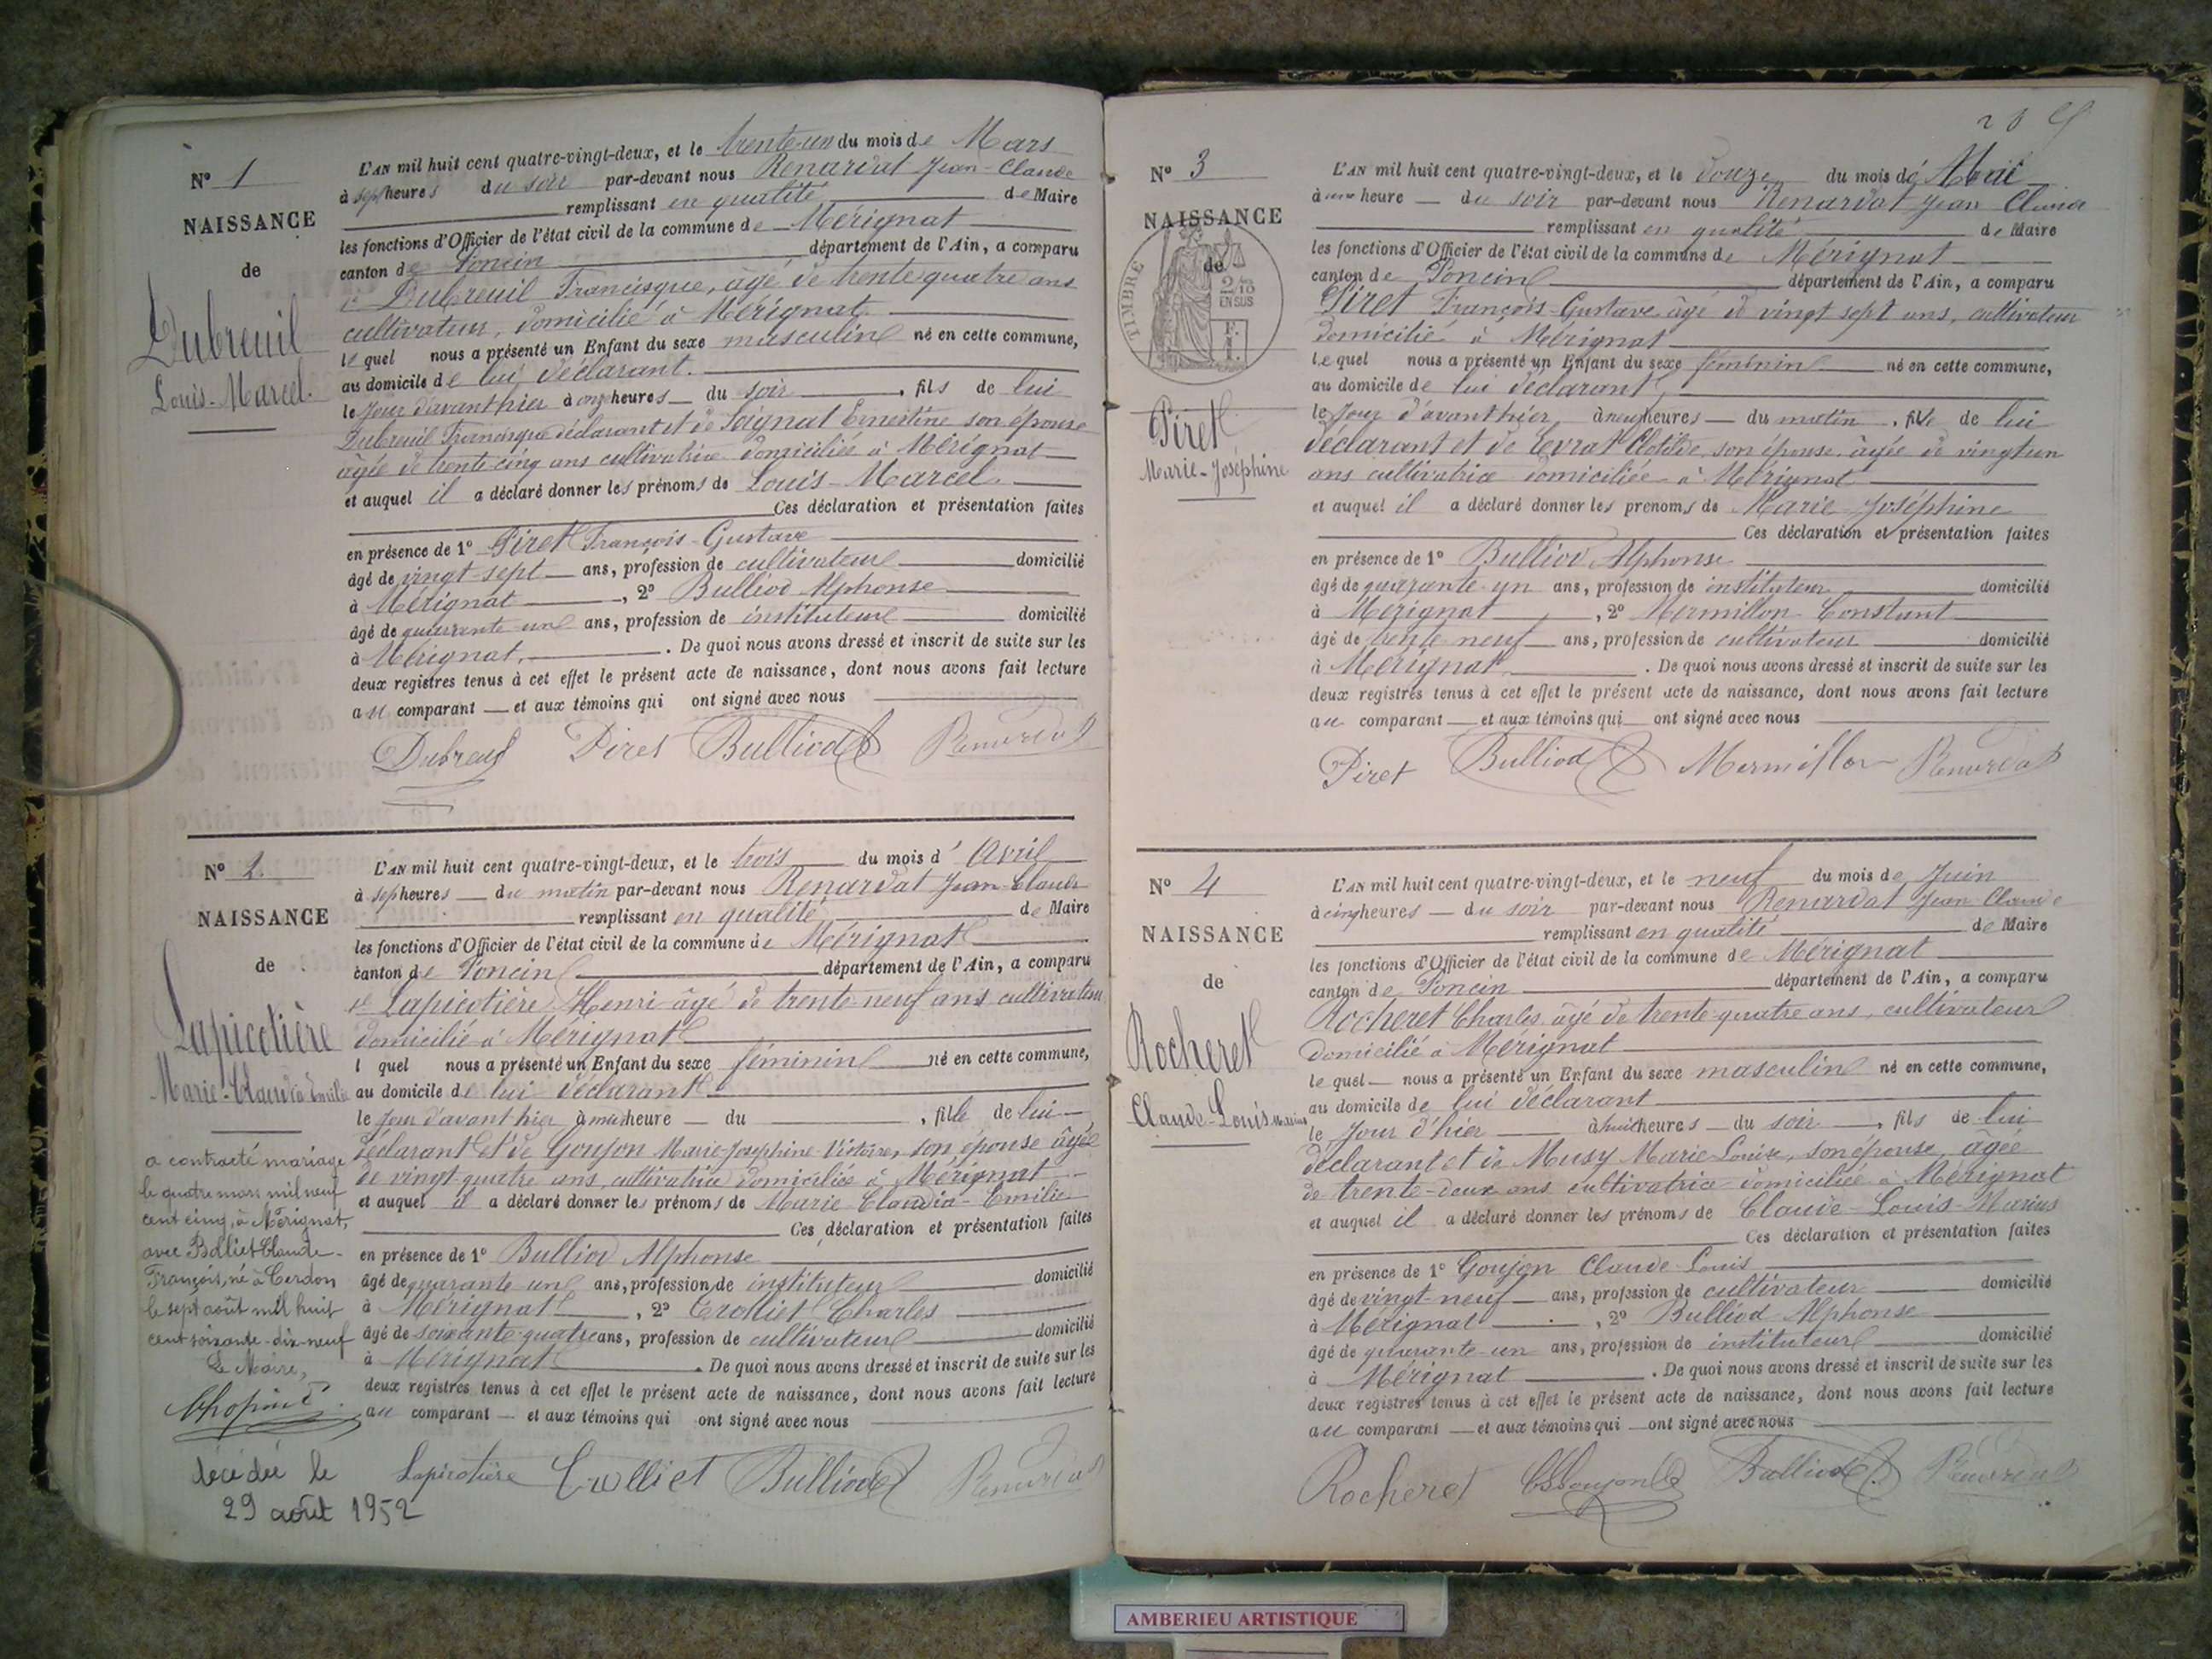 Nº 1
NAISSANCE
de
Dubreuil
Louis-Marcel.
L'AN mil huit cent quatre-vingt-deux, et le trente-un du mois de Mars
à sept heures du soir par-devant nous Renardat Jean-Claude
remplissant en qualité de Maire
les fonctions d'Officier de l'état civil de la commune de Mérignat
canton de Poncin département de l'Ain, a comparu
le Dubreuil Francisque, âgé de trente quatre ans
cultivateur, domicilié à Mérignat.
le quel nous a présenté un Enfant du sexe masculin né en cette commune,
au domicile de lui déclarant.
le jour d'avant hier à onze heures du soir, fils de lui
Dubreuil Francisque déclarant et de Soignat Ernestine son épouse
âgée de trente cinq ans cultivatrice domiciliée à Mérignat
et auquel il a déclaré donner les prénoms de Louis-Marcel.
Ces déclaration et présentation faites
en présence de 1º Piret François-Gustave
âgé de vingt-sept ans, profession de cultivateur domicilié
à Mérignat, 2º Bulliod Alphonse
âgé de quarante un ans, profession de instituteur domicilié
à Mérignat. De quoi nous avons dressé et inscrit de suite sur les
deux registres tenus à cet effet le présent acte de naissance, dont nous avons fait lecture
au comparant et aux témoins qui ont signé avec nous
Dubreuil Piret Bulliod Renardat
Nº 2
NAISSANCE
de
Lapicotière
Marie-Claudia Emilie
a contracté mariage
le quatre mars mil neuf
cent cinq, à Mérignat,
avec Balliet Claude-
François, né à Cerdon
le sept août mil huit
cent soixante-dix-neuf
Le Maire,
décédée le
29 août 1952
L'AN mil huit cent quatre-vingt-deux, et le trois du mois d'Avril
à sept heures du matin par-devant nous Renardat Jean-Claude
remplissant en qualité de Maire
les fonctions d'Officier de l'état civil de la commune de Mérignat
canton de Poncin département de l'Ain, a comparu
le Lapicotière Henri âgé de trente neuf ans cultivateur
domicilié à Mérignat
l quel nous a présenté un Enfant du sexe féminin né en cette commune,
au domicile de lui déclarant
le jour d'avant hier à une heure du , fille de lui
déclarant et de Goujon Marie-Josephine Victoire, son épouse âgée
de vingt quatre ans, cultivatrice domiciliée à Mérignat
et auquel il a déclaré donner les prénoms de Marie Claudia-Emilie
Ces déclaration et présentation faites
en présence de 1º Bulliod Alphonse
âgé de quarante un ans, profession de instituteur domicilié
à Mérignat, 2º Crolliet Charles
âgé de soixante-quatre ans, profession de cultivateur domicilié
à Mérignat. De quoi nous avons dressé et inscrit de suite sur les
deux registres tenus à cet effet le présent acte de naissance, dont nous avons fait lecture
au comparant et aux témoins qui ont signé avec nous
Lapicotière Crolliet Bulliod Renardat
Nº 3
NAISSANCE
de
TIMBRE
2/10
EN SUS
Piret
Marie-Joséphine
L'AN mil huit cent quatre-vingt-deux, et le douze du mois de Mai
à une heure du soir par-devant nous Renardat Jean Claude
remplissant en qualité de Maire
les fonctions d'Officier de l'état civil de la commune de Mérignat
canton de Poncin département de l'Ain, a comparu
Piret François-Gustave âgé de vingt sept ans, cultivateur
domicilié à Mérignat
le quel nous a présenté un Enfant du sexe féminin né en cette commune,
au domicile de lui déclarant,
le jour d'avant hier à neuf heures du matin, fille de lui
déclarant et de Levrat Clotilde, son épouse âgée de vingt un
ans cultivatrice domiciliée à Mérignat
et auquel il a déclaré donner les prénoms de Marie-Joséphine
Ces déclaration et présentation faites
en présence de 1º Bulliod Alphonse
âgé de quarante un ans, profession de instituteur domicilié
à Mérignat, 2º Mermillon Constant
âgé de trente neuf ans, profession de cultivateur domicilié
à Mérignat. De quoi nous avons dressé et inscrit de suite sur les
deux registres tenus à cet effet le présent acte de naissance, dont nous avons fait lecture
au comparant et aux témoins qui ont signé avec nous
Piret Bulliod Mermillon Renardat
Nº 4
NAISSANCE
de
Rocheret
Claude-Louis Marius
L'AN mil huit cent quatre-vingt-deux, et le neuf du mois de Juin
à cinq heures du soir par-devant nous Renardat Jean Claude
remplissant en qualité de Maire
les fonctions d'Officier de l'état civil de la commune de Mérignat
canton de Poncin département de l'Ain, a comparu
Rocheret Charles âgé de trente-quatre ans, cultivateur
domicilié à Mérignat
le quel nous a présenté un Enfant du sexe masculin né en cette commune,
au domicile de lui déclarant
le jour d'hier à huit heures du soir, fils de lui
déclarant et de Musy Marie Louise, son épouse, âgée
de trente-deux ans cultivatrice domiciliée à Mérignat
et auquel il a déclaré donner les prénoms de Claude-Louis-Marius
Ces déclaration et présentation faites
en présence de 1º Goujon Claude-Louis
âgé de vingt-neuf ans, profession de cultivateur domicilié
à Mérignat, 2º Bulliod Alphonse
âgé de quarante-un ans, profession de instituteur domicilié
à Mérignat. De quoi nous avons dressé et inscrit de suite sur les
deux registres tenus à cet effet le présent acte de naissance, dont nous avons fait lecture
au comparant et aux témoins qui ont signé avec nous
Rocheret Goujon Bulliod Renardat
AMBERIEU ARTISTIQUE